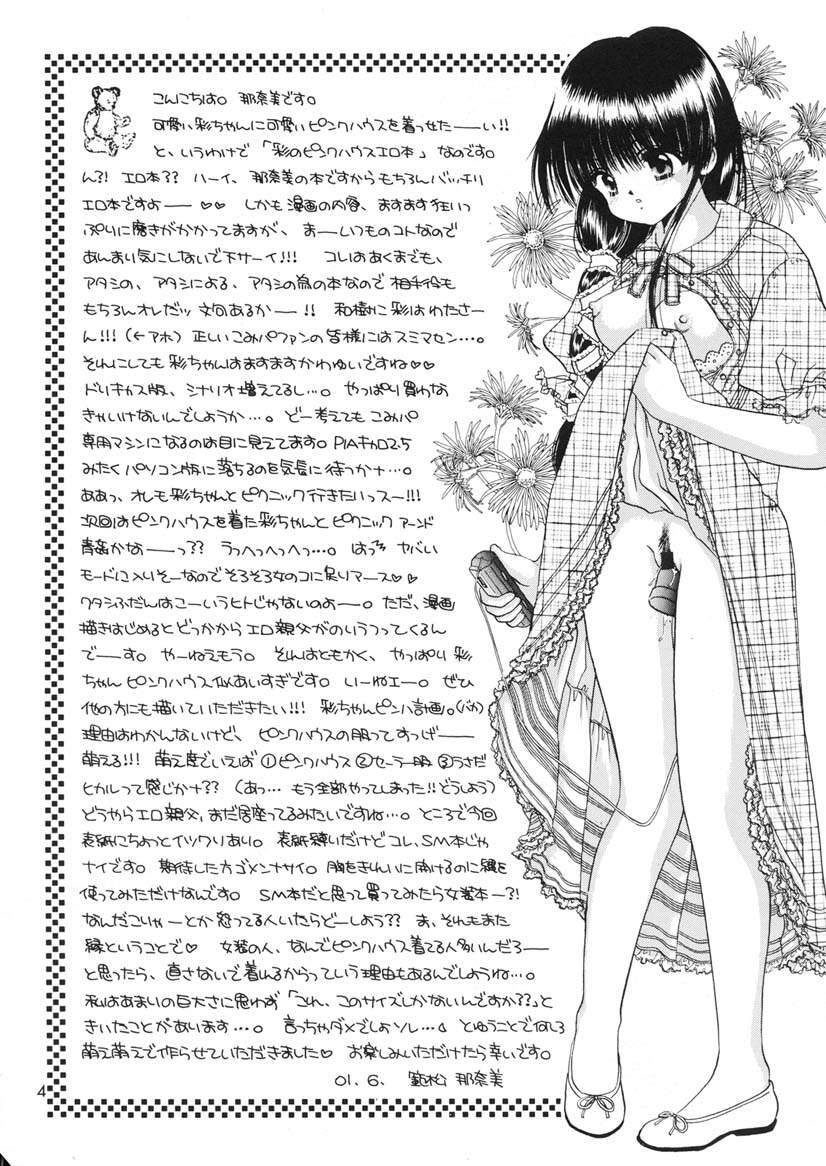 こんにちは。 那奈美です。
可愛い彩ちゃんに可愛いピンクハウスを着せたーーい!!
と、いうわけで「彩のピンクハウスエロ本」なのです。
ん?! エロ本?? ハーイ、那奈美の本ですからもちろんバッチリ
エロ本ですよー♡♡ しかも漫画の内容、ますます狂いっ
ぷりに磨きがかかってますが、まーいつものコトなので
あんまり気にしないで下サーイ!!! コレはあくまでも、
アタシの、アタシによる、アタシの為の本なので相手役も
もちろんオレだッ 文句あるかー!! 和樹に彩はわたさー
ん!!!(←アホ) 正しいこみパファンの皆様にはスミマセン…。
それにしても彩ちゃんはますますかわゆいですね♡♡
ドリキャス版、シナリオ増えてるし…。 やっぱり買わな
きゃいけないんでしょうか…。 どー考えてもこみパ
専用マシンになるのは目に見えてます。PIAキャロ2.5
みたくパソコン版に落ちるのを気長に待つかナ…。
ああっ、オレも彩ちゃんとピクニック行きたいっスー!!!
次回はピンクハウスを着た彩ちゃんとピクニック アーンド
青姦かなーっ?? うっへっへっへっ…。 はっ ヤバい
モードに入りそーなのでそろそろ女のコに戻りマース♡♡
ワタシふだんはこーいうヒトじゃないのよー。ただ、漫画
描きはじめるとどっかからエロ親父がのりうつってくるん
でーす。 やーねえもう。 それはともかく、やっぱり彩
ちゃんピンクハウス似あいすぎです。 いーねエー。 ぜひ
他の方にも描いていただきたい!!! 彩ちゃんピンハ計画。(バカ)
理由はわかんないけど、ピンクハウスの服ってすっげー
萌える!!! 萌え度でいえば①ピンクハウス ②セーラー服 ③うさだ
ヒカルって感じかナ?? (あっ… もう全部やってしまった!!どうしよう)
どうやらエロ親父、まだ居座ってるみたいですね…。ところで今回
表紙にちょっとイツワリあり。 表紙縛いだけどコレ、SM本じゃ
ナイです。 期待した方ゴメンナサイ。 胸をきれいに開けるのに縄を
使ってみただけなんです。 SM本だと思って買ってみたら女装本ー?!
なんだこりゃーとか怒ってる人いたらどーしよう?? ま、それもまた
縁ということで♡ 女装の人、なんでピンクハウス着てる人多いんだろー
と思ったら、直さないで着れるからっていう理由もあるんでしょうね…。
私はあまりの巨大さに思わず「これ、このサイズしかないんですか??」と
きいたことがあります…。 言っちゃダメでしょソレ… とゆうことで何しろ
萌え萌えで作らせていただきました♡ お楽しみいただけたら幸いです。
01.6. 那奈美
4